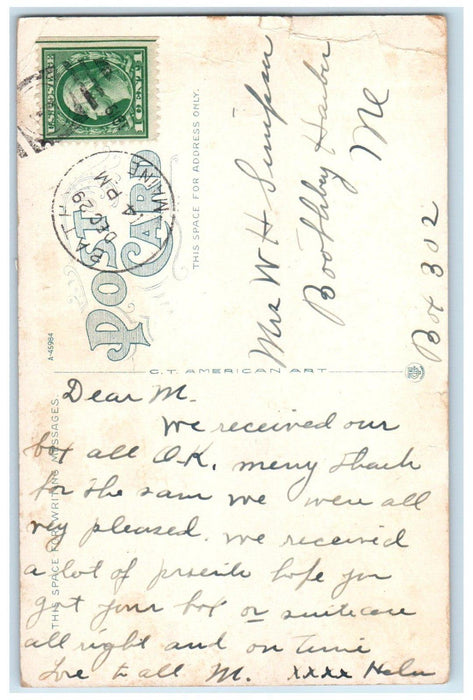 U.S. POSTAGE
1 CENT 1
BATH
MAINE
DEC 29
4 PM
POST CARD
THIS SPACE FOR ADDRESS ONLY.
Mrs W H Simpson
Boothbay Harbor
Me
Box 302
A-45984
C.T. AMERICAN ART
THIS SPACE FOR WRITING MESSAGES.
Dear M.
We received our
box all O.K. meny thank
for the sam we were all
very pleased. we received
a lot of presents hope you
got your box or suitcase
all right and on time
Love to all M. xxxx Helen